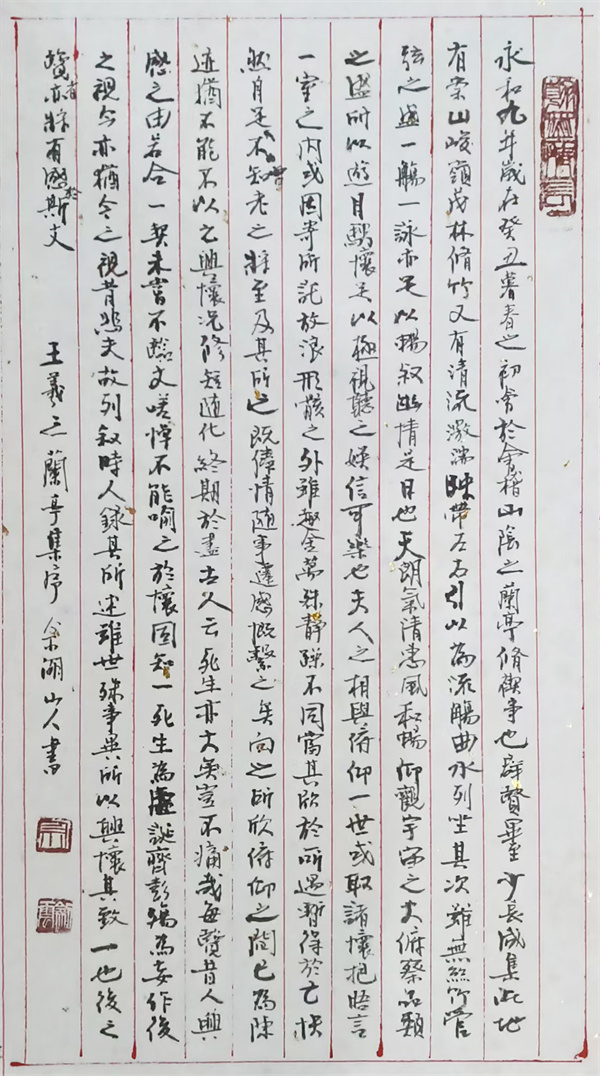 永和九年歲在癸丑暮春之初會於會稽山陰之蘭亭脩禊事也群賢畢至少長咸集此地
有崇山峻嶺茂林脩竹又有清流激湍映帶左右引以為流觴曲水列坐其次雖無絲竹管
弦之盛一觴一詠亦足以暢叙幽情是日也天朗氣清惠風和暢仰觀宇宙之大俯察品類
之盛所以遊目騁懷足以極視聽之娛信可樂也夫人之相與俯仰一世或取諸懷抱晤言
一室之內或因寄所託放浪形骸之外雖趣舍萬殊靜躁不同當其欣於所遇暫得於己快
然自足不知老之將至及其所之既倦情隨事遷感慨繫之矣向之所欣俯仰之間已為陳
迹猶不能不以之興懷況修短隨化終期於盡古人云死生亦大矣豈不痛哉每覽昔人興
感之由若合一契未嘗不臨文嗟悼不能喻之於懷固知一死生為虛誕齊彭殤為妄作後
之視今亦猶今之視昔悲夫故列叙時人錄其所述雖世殊事異所以興懷其致一也後之
覽者亦將有感於斯文
王羲之蘭亭集序 余湖山人書